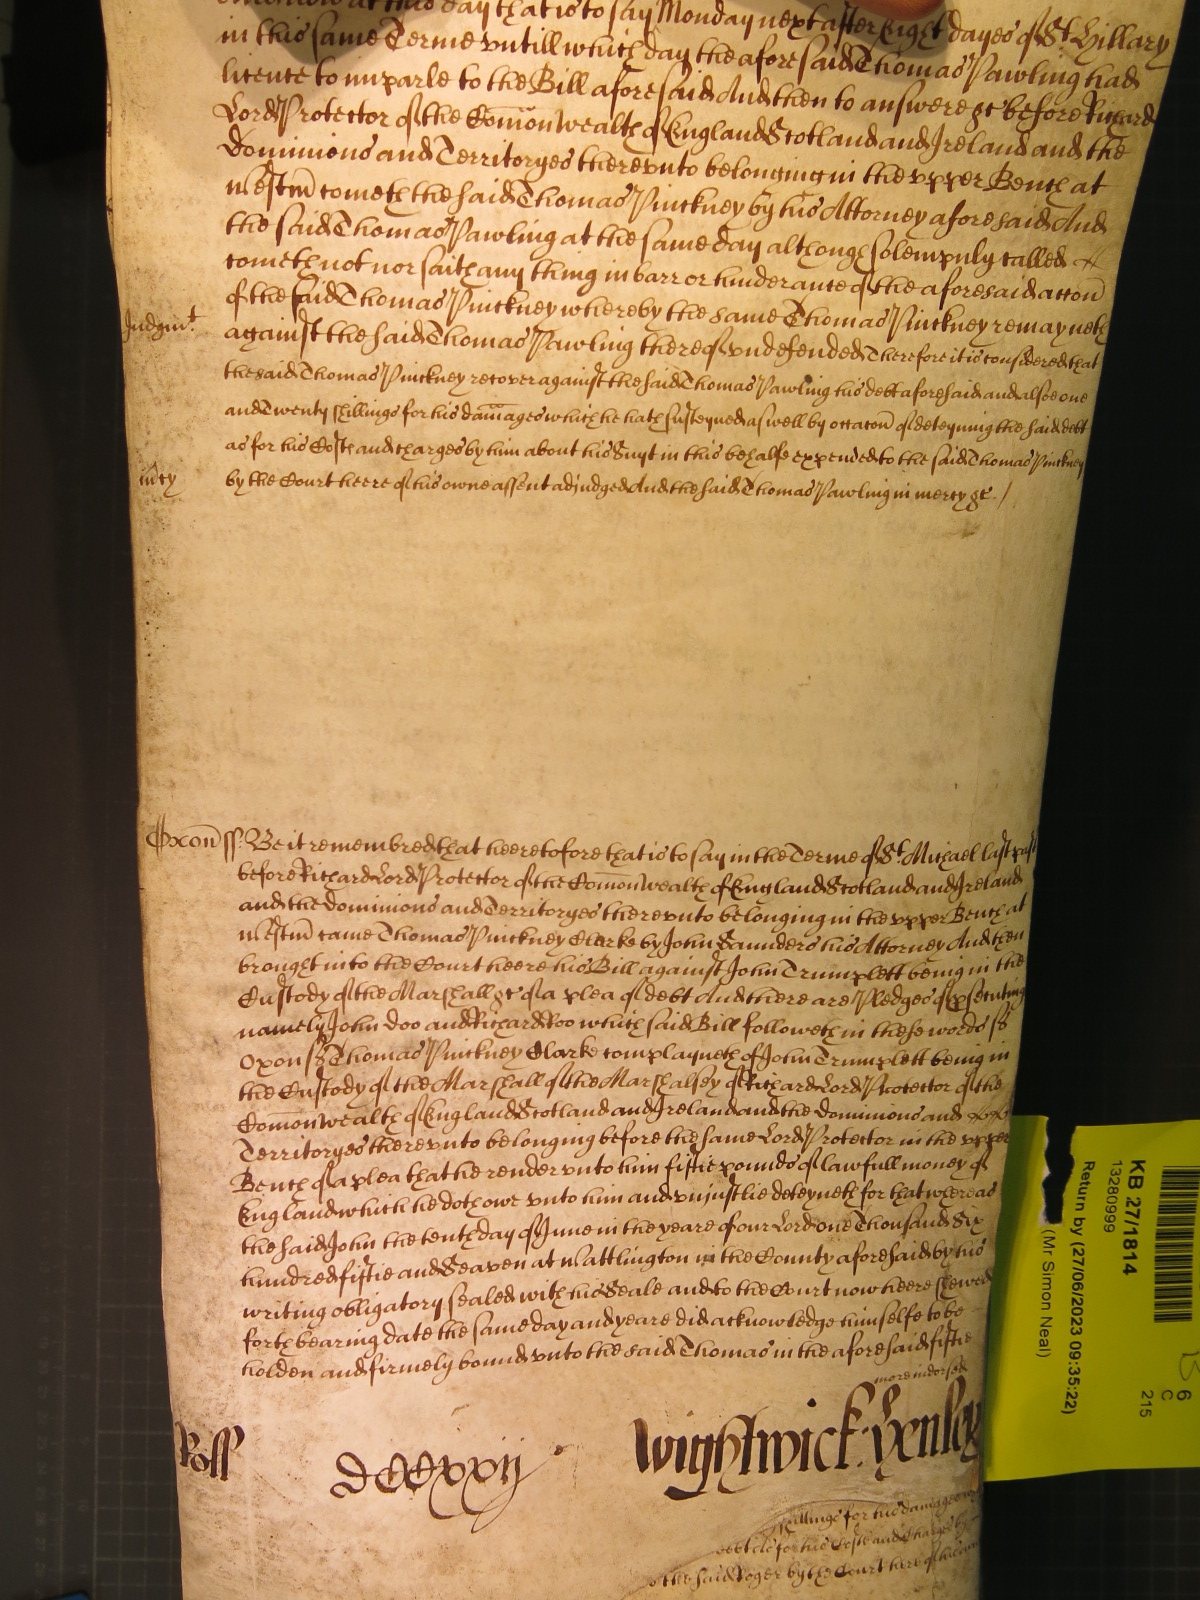 day that is to say Monday next after Eight dayes of St. Hillary
in this same Terme untill which day the aforesaid Thomas Pawling had
licence to imparle to the Bill aforesaid And then to answere &c before Richard
Lord Protector of the Comonwealth of England Scotland and Ireland and the
Dominions and Territoryes thereunto belonging in the upper Bench at
Westm cometh the said Thomas Pinckney by his Attorney aforesaid And
the said Thomas Pawling at the same day although solempnly called
cometh not nor saith any thing in barr or hinderance of the aforesaid accon
of the said Thomas Pinckney whereby the same Thomas Pinckney remayneth
Judgmt.
against the said Thomas Pawling thereof undefended Therefore it is considered that
the said Thomas Pinckney recover against the said Thomas Pawling his debt aforesaid and alsoe one
and Twenty shillings for his damages which he hath susteyned aswell by occacon of deteyning the said debt
as for his Costs and charges by him about his Suyt in this behalfe expended to the said Thomas Pinckney
mcy
by the Court heere of his owne assent adjudged And the said Thomas Pawling in mercy &c. /
Oxon ss. Be it remembred that heeretofore that is to say in the Terme of St. Michael last past
before Richard Lord Protector of the Comonwealth of England Scotland and Ireland
and the Dominions and Territoryes thereunto belonging in the upper Bench at
Westm came Thomas Pinckney Clarke by John Saunders his Attorney And then
brought into the Court heere his Bill against John Trumplett being in the
Custody of the Marshall &c of a plea of debt And there are Pledges of prosecuting
namely John Doo and Richard Roo which said Bill followeth in these words ss
Oxon ss Thomas Pinckney Clarke complayneth of John Trumplett being in
the Custody of the Marshall of the Marshalsey of Richard Lord Protector of the
Comonwealth of England Scotland and Ireland and the dominions and
Territoryes thereunto belonging before the same Lord Protector in the upper
Bench of a plea that he render unto him fiftie pounds of lawfull money of
England which he doth owe unto him and unjustlie deteyneth for that whereas
the said John the tenth day of June in the yeare of our Lord one Thousand Six
hundred fiftie and Seaven at Wattlington in the County aforesaid by his
writing obligatory sealed with his Seale and to the Court now heere shewed
forth bearing date the same day and yeare did acknowledge himselfe to be
holden and firmely bound unto the said Thomas in the aforesaid fiftie
more indorsed
Roll
DCCCxxij
Wightwick: Henley
shillings for his damages
for his Costs and charges by
the said Roger by the Court here of his
KB 27/1814
13280999
Return by (27/06/2023 09:35:22)
(Mr Simon Neal)
6
C
215